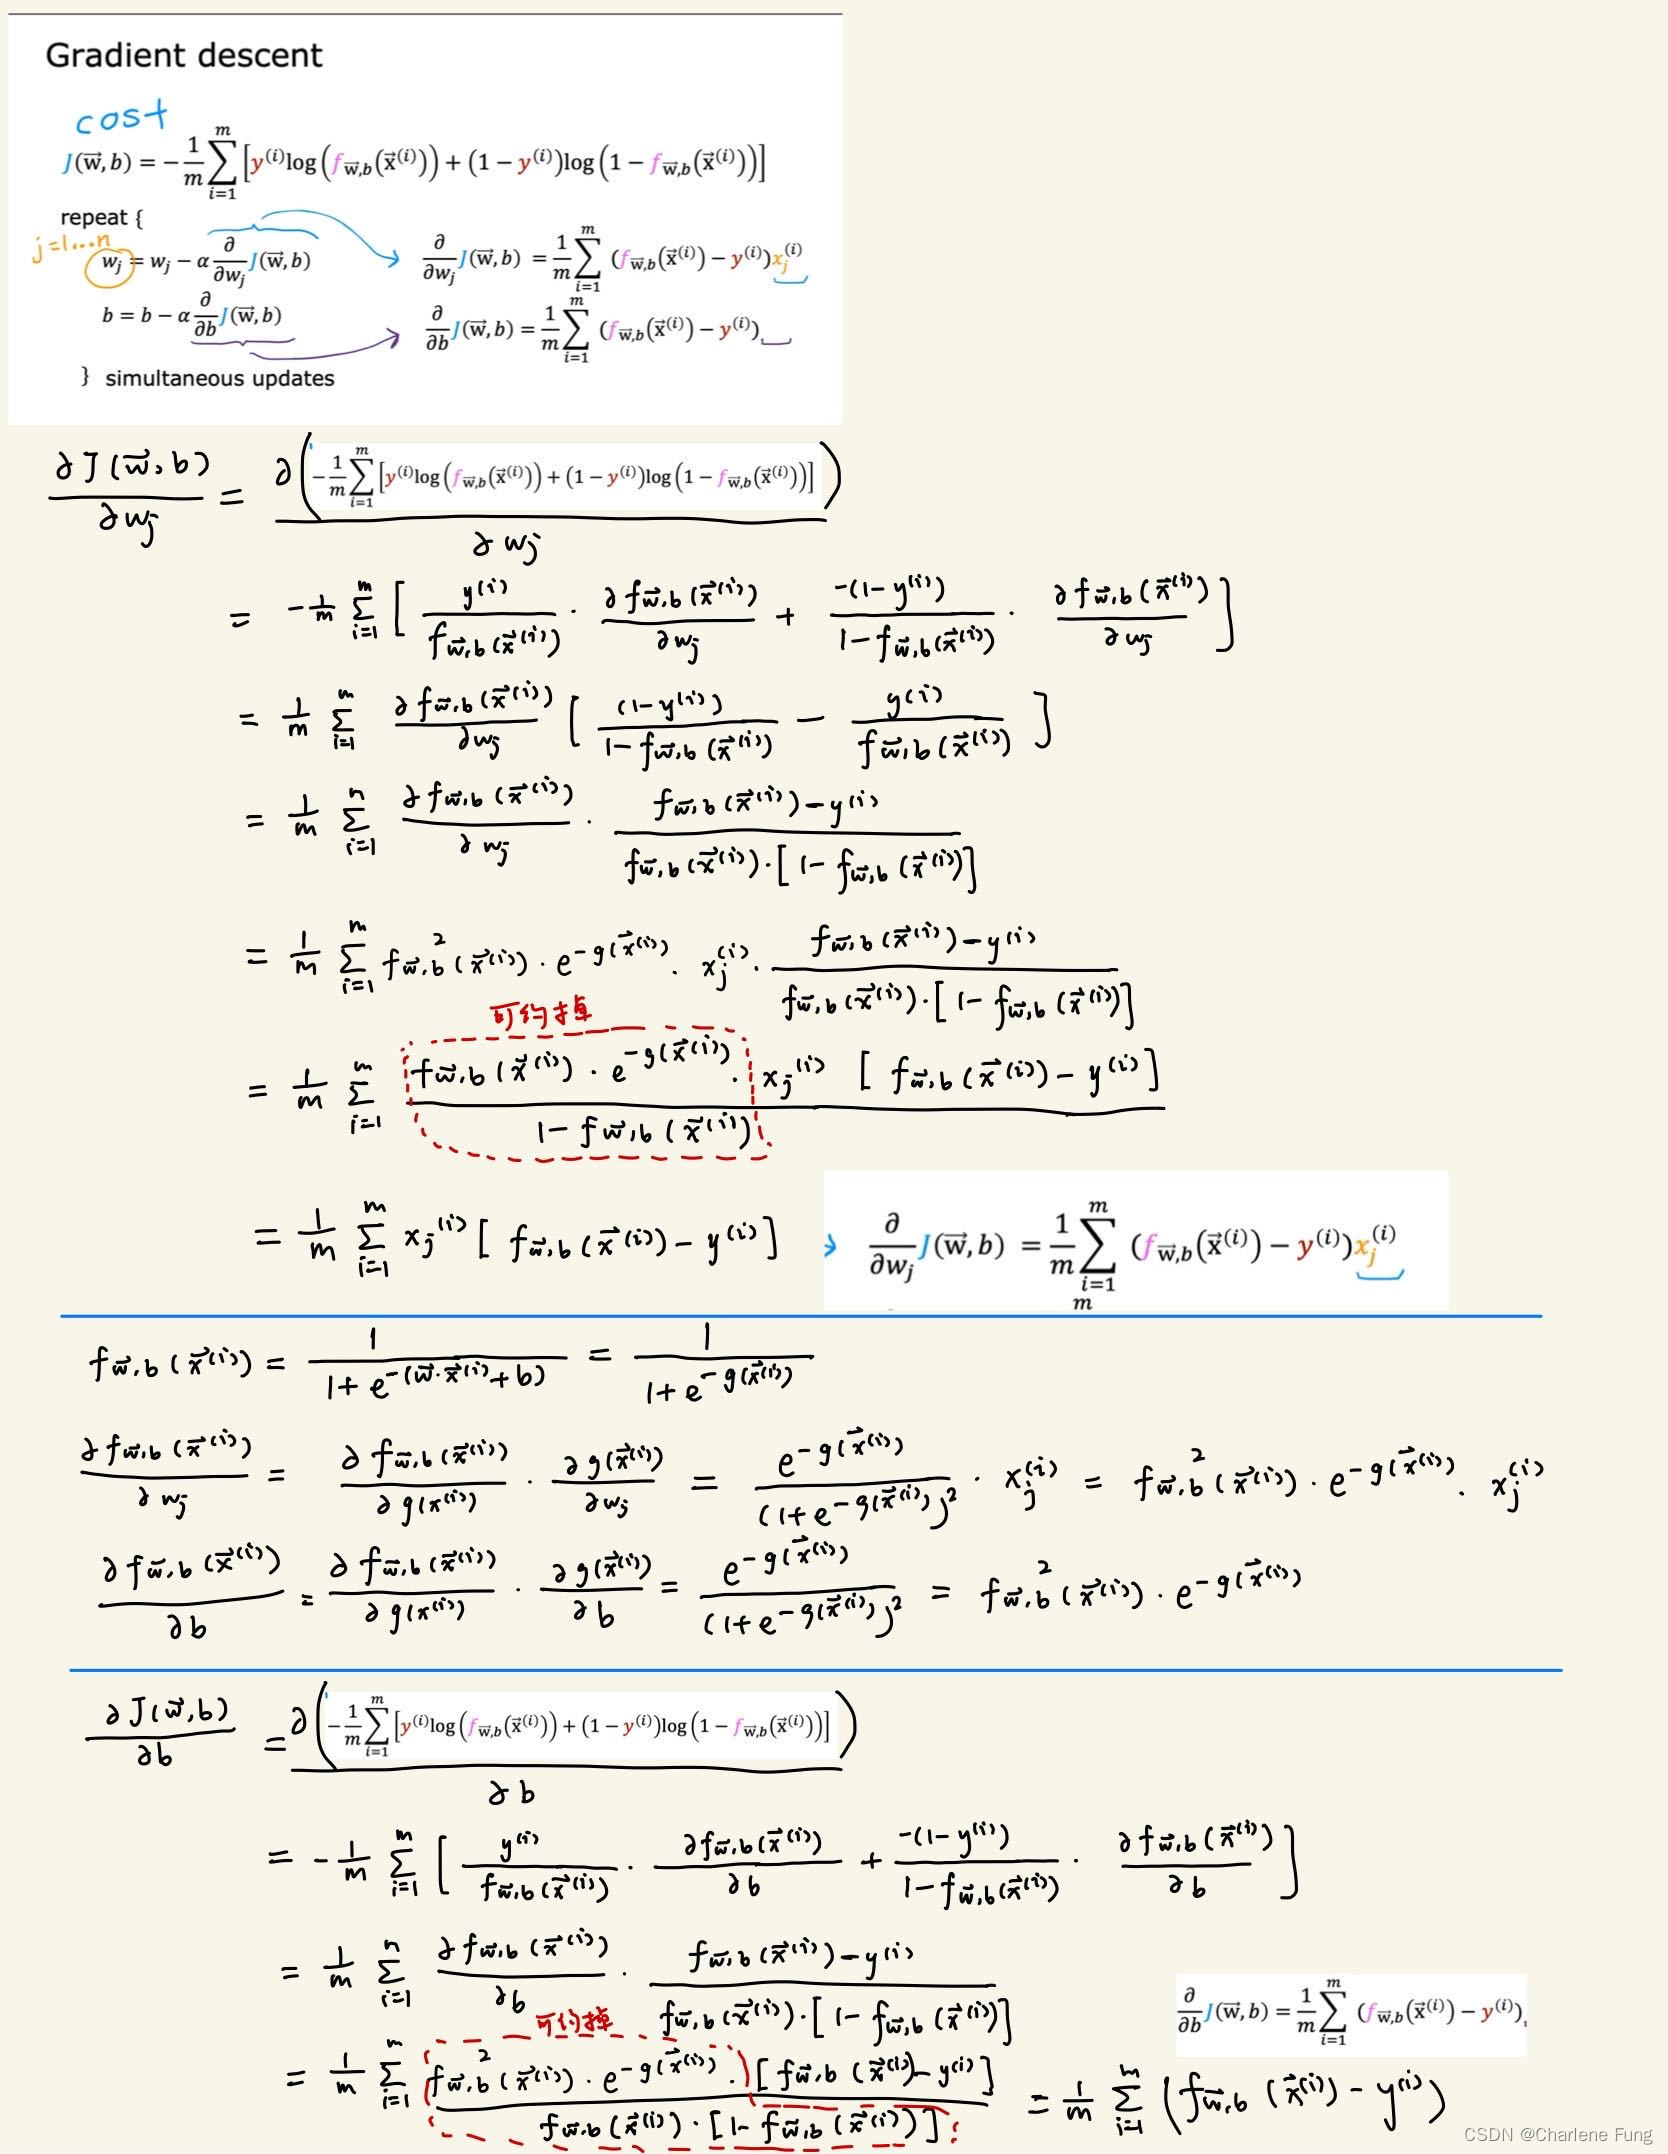 Gradient descent
cost
J(w⃗, b) = −1/m ∑_{i=1}^{m} [y⁽ⁱ⁾log(f_{w⃗,b}(x⃗⁽ⁱ⁾)) + (1 − y⁽ⁱ⁾)log(1 − f_{w⃗,b}(x⃗⁽ⁱ⁾))]
repeat {
j=1...n
w_j = w_j − α ∂/∂w_j J(w⃗, b) ∂/∂w_j J(w⃗, b) = 1/m ∑_{i=1}^{m} (f_{w⃗,b}(x⃗⁽ⁱ⁾) − y⁽ⁱ⁾)x_j⁽ⁱ⁾
b = b − α ∂/∂b J(w⃗, b) ∂/∂b J(w⃗, b) = 1/m ∑_{i=1}^{m} (f_{w⃗,b}(x⃗⁽ⁱ⁾) − y⁽ⁱ⁾)
} simultaneous updates
∂J(w⃗,b)/∂w_j = ∂(−1/m ∑_{i=1}^{m} [y⁽ⁱ⁾log(f_{w⃗,b}(x⃗⁽ⁱ⁾)) + (1 − y⁽ⁱ⁾)log(1 − f_{w⃗,b}(x⃗⁽ⁱ⁾))])/∂w_j
= −1/m ∑_{i=1}^{m} [ y⁽ⁱ⁾/f_{w⃗,b}(x⃗⁽ⁱ⁾) · ∂f_{w⃗,b}(x⃗⁽ⁱ⁾)/∂w_j + −(1−y⁽ⁱ⁾)/(1−f_{w⃗,b}(x⃗⁽ⁱ⁾)) · ∂f_{w⃗,b}(x⃗⁽ⁱ⁾)/∂w_j ]
= 1/m ∑_{i=1}^{m} ∂f_{w⃗,b}(x⃗⁽ⁱ⁾)/∂w_j [ (1−y⁽ⁱ⁾)/(1−f_{w⃗,b}(x⃗⁽ⁱ⁾)) − y⁽ⁱ⁾/f_{w⃗,b}(x⃗⁽ⁱ⁾) ]
= 1/m ∑_{i=1}^{n} ∂f_{w⃗,b}(x⃗⁽ⁱ⁾)/∂w_j · (f_{w⃗,b}(x⃗⁽ⁱ⁾)−y⁽ⁱ⁾)/(f_{w⃗,b}(x⃗⁽ⁱ⁾)·[1−f_{w⃗,b}(x⃗⁽ⁱ⁾)])
= 1/m ∑_{i=1}^{m} f²_{w⃗,b}(x⃗⁽ⁱ⁾) · e^{−g(x⃗⁽ⁱ⁾)} · x_j⁽ⁱ⁾ · (f_{w⃗,b}(x⃗⁽ⁱ⁾)−y⁽ⁱ⁾)/(f_{w⃗,b}(x⃗⁽ⁱ⁾)·[1−f_{w⃗,b}(x⃗⁽ⁱ⁾)])
可约掉
= 1/m ∑_{i=1}^{m} f_{w⃗,b}(x⃗⁽ⁱ⁾) · e^{−g(x⃗⁽ⁱ⁾)} · x_j⁽ⁱ⁾ [f_{w⃗,b}(x⃗⁽ⁱ⁾)−y⁽ⁱ⁾]/(1−f_{w⃗,b}(x⃗⁽ⁱ⁾))
= 1/m ∑_{i=1}^{m} x_j⁽ⁱ⁾ [f_{w⃗,b}(x⃗⁽ⁱ⁾)−y⁽ⁱ⁾] ∂/∂w_j J(w⃗, b) = 1/m ∑_{i=1}^{m} (f_{w⃗,b}(x⃗⁽ⁱ⁾) − y⁽ⁱ⁾)x_j⁽ⁱ⁾
m
f_{w⃗,b}(x⃗⁽ⁱ⁾) = 1/(1+e^{−(w⃗·x⃗⁽ⁱ⁾+b)}) = 1/(1+e^{−g(x⃗⁽ⁱ⁾)})
∂f_{w⃗,b}(x⃗⁽ⁱ⁾)/∂w_j = ∂f_{w⃗,b}(x⃗⁽ⁱ⁾)/∂g(x⁽ⁱ⁾) · ∂g(x⃗⁽ⁱ⁾)/∂w_j = e^{−g(x⃗⁽ⁱ⁾)}/(1+e^{−g(x⃗⁽ⁱ⁾)})² · x_j⁽ⁱ⁾ = f²_{w⃗,b}(x⃗⁽ⁱ⁾) · e^{−g(x⃗⁽ⁱ⁾)} · x_j⁽ⁱ⁾
∂f_{w⃗,b}(x⃗⁽ⁱ⁾)/∂b = ∂f_{w⃗,b}(x⃗⁽ⁱ⁾)/∂g(x⁽ⁱ⁾) · ∂g(x⃗⁽ⁱ⁾)/∂b = e^{−g(x⃗⁽ⁱ⁾)}/(1+e^{−g(x⃗⁽ⁱ⁾)})² = f²_{w⃗,b}(x⃗⁽ⁱ⁾) · e^{−g(x⃗⁽ⁱ⁾)}
∂J(w⃗,b)/∂b = ∂(−1/m ∑_{i=1}^{m} [y⁽ⁱ⁾log(f_{w⃗,b}(x⃗⁽ⁱ⁾)) + (1 − y⁽ⁱ⁾)log(1 − f_{w⃗,b}(x⃗⁽ⁱ⁾))])/∂b
= −1/m ∑_{i=1}^{m} [ y⁽ⁱ⁾/f_{w⃗,b}(x⃗⁽ⁱ⁾) · ∂f_{w⃗,b}(x⃗⁽ⁱ⁾)/∂b + −(1−y⁽ⁱ⁾)/(1−f_{w⃗,b}(x⃗⁽ⁱ⁾)) · ∂f_{w⃗,b}(x⃗⁽ⁱ⁾)/∂b ]
= 1/m ∑_{i=1}^{n} ∂f_{w⃗,b}(x⃗⁽ⁱ⁾)/∂b · (f_{w⃗,b}(x⃗⁽ⁱ⁾)−y⁽ⁱ⁾)/(f_{w⃗,b}(x⃗⁽ⁱ⁾)·[1−f_{w⃗,b}(x⃗⁽ⁱ⁾)])
∂/∂b J(w⃗, b) = 1/m ∑_{i=1}^{m} (f_{w⃗,b}(x⃗⁽ⁱ⁾) − y⁽ⁱ⁾)
可约掉
= 1/m ∑_{i=1}^{m} f²_{w⃗,b}(x⃗⁽ⁱ⁾) · e^{−g(x⃗⁽ⁱ⁾)} · [f_{w⃗,b}(x⃗⁽ⁱ⁾)−y⁽ⁱ⁾]/(f_{w⃗,b}(x⃗⁽ⁱ⁾)·[1−f_{w⃗,b}(x⃗⁽ⁱ⁾)]) = 1/m ∑_{i=1}^{m} (f_{w⃗,b}(x⃗⁽ⁱ⁾) − y⁽ⁱ⁾)
CSDN @Charlene Fung